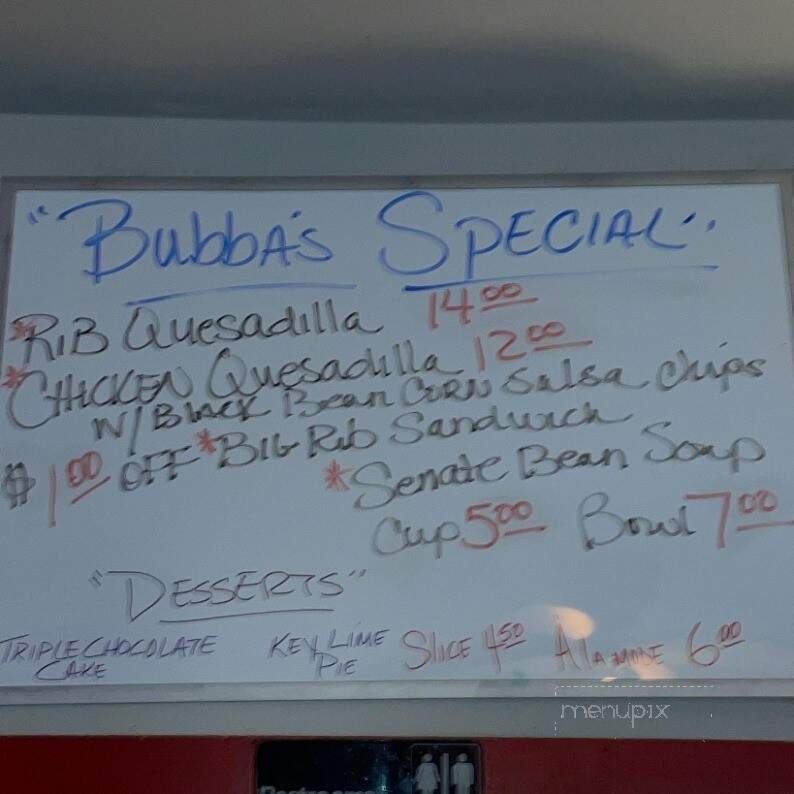 "Bubba's Special"
*Rib Quesadilla 14.00
*Chicken Quesadilla 12.00
w/ Black Bean Corn Salsa Chips
$1.00 OFF *Big Rib Sandwich
*Senate Bean Soup
Cup 5.00 Bowl 7.00
"Desserts"
Triple Chocolate Cake Key Lime Pie Slice 4.50 A la mode 6.00
menupix
Restrooms